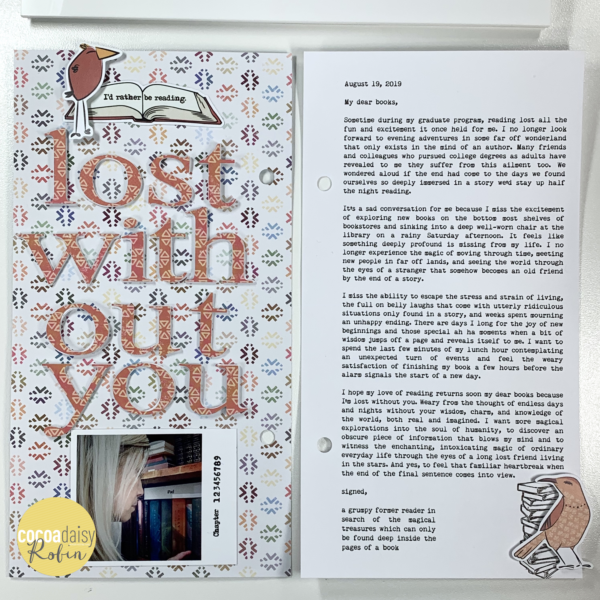 I'd rather be reading.
lost
with
out
you
Chapter 123456789
cocoadaisy
Robin
August 19, 2019
My dear books,
Sometime during my graduate program, reading lost all the
fun and excitement it once held for me. I no longer look
forward to evening adventures in some far off wonderland
that only exists in the mind of an author. Many friends
and colleagues who pursued college degrees as adults have
revealed to me they suffer from this ailment too. We
wondered aloud if the end had come to the days we found
ourselves so deeply immersed in a story we'd stay up half
the night reading.
It's a sad conversation for me because I miss the excitement
of exploring new books on the bottom most shelves of
bookstores and sinking into a deep well-worn chair at the
library on a rainy Saturday afternoon. It feels like
something deeply profound is missing from my life. I no
longer experience the magic of moving through time, meeting
new people in far off lands, and seeing the world through
the eyes of a stranger that somehow becomes an old friend
by the end of a story.
I miss the ability to escape the stress and strain of living,
the full on belly laughs that come with utterly ridiculous
situations only found in a story, and weeks spent mourning
an unhappy ending. There are days I long for the joy of new
beginnings and those special ah ha moments when a bit of
wisdom jumps off a page and reveals itself to me. I want to
spend the last few minutes of my lunch hour contemplating
an unexpected turn of events and feel the weary
satisfaction of finishing my book a few hours before the
alarm signals the start of a new day.
I hope my love of reading returns soon my dear books because
I'm lost without you. Weary from the thought of endless days
and nights without your wisdom, charm, and knowledge of
the world, both real and imagined. I want more magical
explorations into the soul of humanity, to discover an
obscure piece of information that blows my mind and to
witness the enchanting, intoxicating magic of ordinary
everyday life through the eyes of a long lost friend living
in the stars. And yes, to feel that familiar heartbreak when
the end of the final sentence comes into view.
signed,
a grumpy former reader in
search of the magical
treasures which can only
be found deep inside the
pages of a book